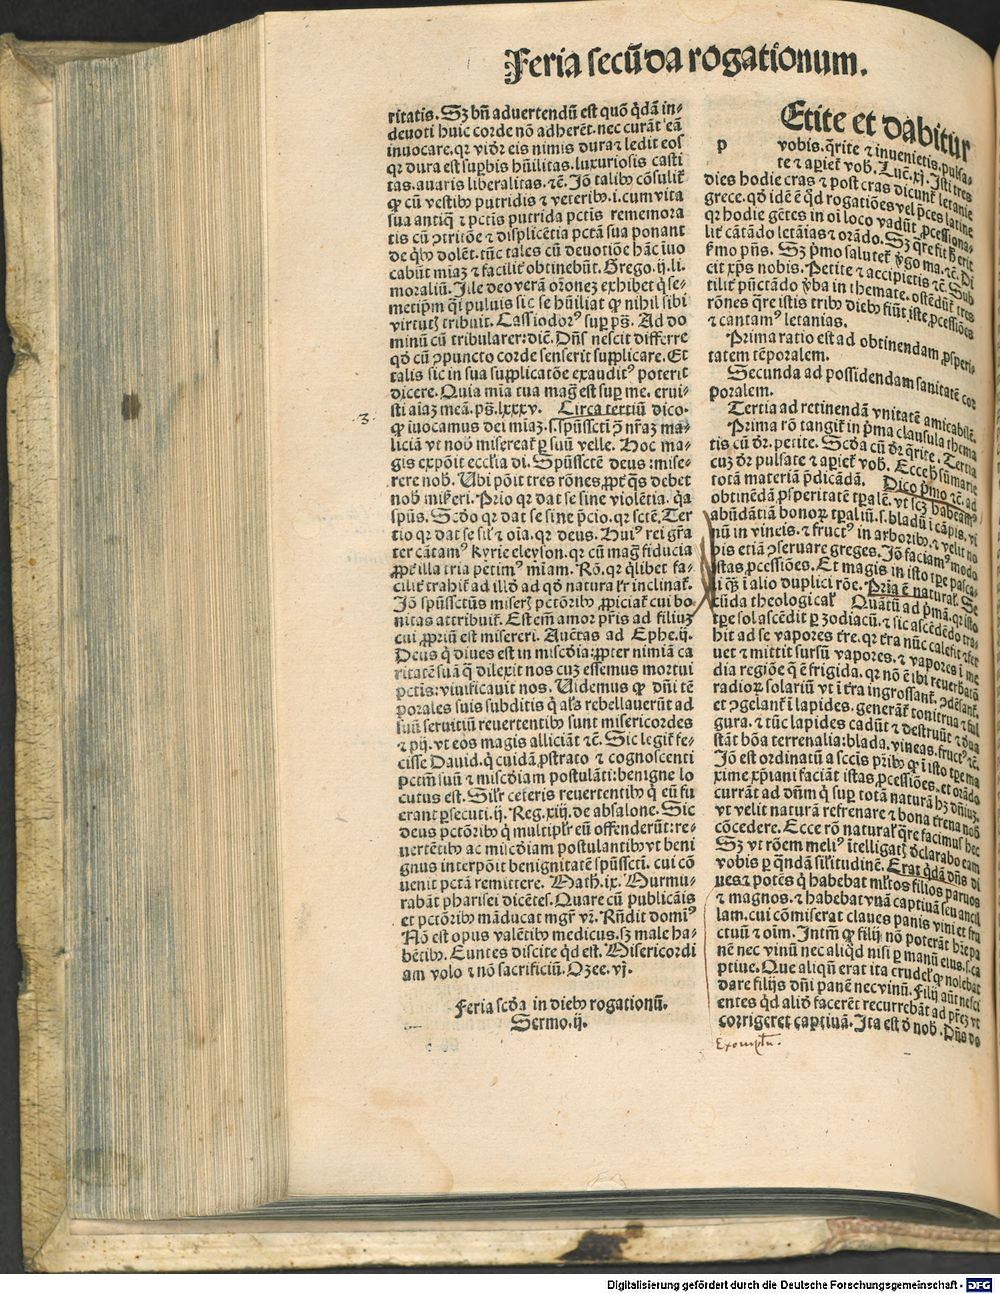 Feria secūda rogationum.
ritatis. Sꝫ bn̄ aduertendū est quō q̇dā in⸗
deuoti huic corde nō adherēt. nec curāt eā
inuocare. qꝛ vr̄ eis nimis dura ⁊ ledit eos
qꝛ dura est suꝑbis hūilitas. luxuriosis casti
tas. auaris liberalitas. ⁊c̄. Jō talibꝰ cōsulit᷑
ꝙ cū vestibꝰ putridis ⁊ veteribꝰ. i. cum vita
sua antiq̄ ⁊ pctīs putrida pctīs rememora
tis cū ꝯtritōe ⁊ displicētia pctā sua ponant
de qͥbꝰ dolēt. tūc tales cū deuotiōe hāc iuo
cabūt miaꝫ ⁊ facilit᷑ obtinebūt. Grego. ij. li.
moraliū. Jlle deo verā orōneꝫ exhibet q̇ se⸗
metip̄m qͥ puluis sic se hūiliat ꝙ nihil sibi
virtutꝭ tribuit. Cassiodorꝰ suꝑ ps̄. Ad do
minū cū tribularer: diē. Dn̄s nescit differre
qḋ cū ꝯpuncto corde senserit supplicare. Et
talis sic in sua supplicatōe exauditꝰ poterit
dicere. Quia mīa tua mag̊ est suꝑ me. erui⸗
sti aiaꝫ meā. ps̄. lxxxv. Circa tertiū dico.
.3.
ꝙ iuocamus dei miaꝫ. s. spūssctī ꝯ̄ nr̄aꝫ ma⸗
liciā vt nob̄ misereat᷑ ꝑ suū velle. Hoc ma⸗
gis expōit eccl̄ia dī. Spūssctē deus: mise⸗
rere nob̄. Ubi pōit tres rōnes, ꝓpt᷑ q̄s debet
nob̄ mis̄eri. Prīo qꝛ dat se sine violētia. q̄a
spūs. Scḋo qꝛ dat se sine p̄cio. qꝛ sctē. Ter
tio qꝛ dat se sil̄ ⁊ oīa. qꝛ deus. Huiꝰ rei gr̄a
ter cātamꝰ kyrie eleyson. qꝛ cū mag̊ fiducia
ꝓpt᷑ illa tria petimꝰ mīam. Rō. qꝛ q̇libet fa⸗
cilit᷑ trahit᷑ ad illḋ ad qḋ natural᷑r inclinat᷑.
Jō spūssctūs miserꝫ pctōribꝰ, ꝓpiciat᷑ cui bo⸗
nitas attribuit᷑. Est em̄ amor pr̄is ad filiuꝫ
cui, ꝓpriū est misereri. Auc̄tas ad Ephe. ij.
Deus q̇ diues est in misc̄dia: ꝓpter nimiā ca
ritatē suā q̄ dilexit nos cuꝫ essemus mortui
pctīs: viuificauit nos. Uidemus ꝙ dn̄i tē
ꝑorales suis subditis q̇ al̄s rebellauerūt ad
suū seruitiū reuertentibꝰ sunt misericordes
⁊ pij. vt eos magis alliciāt ⁊c̄. Sic legit᷑ fe⸗
cisse Dauid. q̇ cuidā, ꝓstrato ⁊ cognoscenti
pctm̄ suū ⁊ misc̄diam postulāti: benigne lo
cutus est. Sil̄r ceteris reuertentibꝰ q̇ eū fu
erant ꝑsecuti. ij. Reg. xiij. de absalone. Sic
deus pctōribꝰ q̇ multipl᷑r eū offenderūt: re⸗
uertētibꝰ ac misc̄diam postulantibꝰ vt beni
gnus interpōit benignitatē spūssctī. cui cō
uenit pctā remittere. Math. ix. Murmu⸗
rabāt pharisei dicētes. Quare cū publicāis
et pctōribꝰ māducat mgr̄ vr̄. Rn̄dit domiꝰ
Nō est opus valētibꝰ medicus. sꝫ male ha⸗
bētibꝰ. Euntes discite qḋ est. Misericordi
am volo ⁊ nō sacrificiū. Ozee. vj.
Feria scḋa in diebꝰ rogationū.
Sermo. ij.
Etite et dabitur
p vobis. q̄rite ⁊ inuenietis. pulsa⸗
te ⁊ aꝑiet᷑ vob̄. Luc̄. xj. Jsti tres
dies hodie cras ⁊ post cras dicunt᷑ letanie
grece. qḋ idē ē qḋ rogatiōes vel p̄ces latine
qꝛ hodie gētes in oī loco vadūt, ꝓcessiona⸗
lit᷑ cātādo letaīas ⁊ orādo. Sꝫ q̄re fit h̄ erit
sermo pn̄s. Sꝫ p̄mo salutet᷑ v̄go ma. ⁊c̄. Di
cit xp̄s nobis. Petite ⁊ accipietis ⁊c̄. Sub
tilit᷑ pūctādo v̄ba in themate. ostēdūt᷑ tres
rōnes q̄re istis tribꝰ diebꝰ fiūt iste, ꝓcessiōes
⁊ cantamꝰ letanias.
Prima ratio est ad obtinendam, ꝓsperi⸗
tatem tēporalem.
Secunda ad possidendam sanitatē cor
poralem.
Tertia ad retinendā vnitatē amicabilē.
Prima rō tangit᷑ in p̄ma clausula thema
tis cū dr̄. petite. Scḋa cū dr̄ q̄rite. Tertia
cuꝫ dr̄ pulsate ⁊ aꝑiet᷑ vob̄. Ecce h̄ sūmarie
totā materiā p̄dicādā. Dico p̄mo ⁊c̄. ad
obtinēdā ꝓsperitatē tꝑalē. vt scꝫ habeamꝰ
abūdātiā bonoꝝ tꝑaliū. s. bladū ī cāpis, vi
nū in vineis. ⁊ fructꝰ in arboribꝰ. ⁊ velit no
bis etiā ꝯseruare greges. Jō faciamꝰ modo
istas, ꝓcessiōes. Et magis in isto tꝑe pasca⸗
li q̄ꝫ ī alio duplici rōe. Pria ē natural᷑. Se
cūda theological᷑ Quātū ad p̄mā. qꝛ isto
tꝑe sol ascēdit ꝑ zodiacū. ⁊ sic ascēdēdo tra⸗
hit ad se vapores tr̄e. qꝛ tr̄a nūc calefit ⁊ fer
uet ⁊ mittit sursū vapores. ⁊ vapores ī me
dia regiōe q̄ ē frigida. qꝛ nō ē ibi reuerbatō
radioꝝ solariū vt ī tr̄a ingrossant᷑. ꝯdēsant᷑.
et ꝯgelant᷑ ī lapides. generāt᷑ tonitrua ⁊ ful
gura. ⁊ tūc lapides cadūt ⁊ destruūt ⁊ deua
stāt bōa terrenalia: blada. vineas. fructꝰ ⁊c̄.
Jō est ordinatū a scc̄īs pr̄ibꝰ ꝙ ī isto tꝑe ma
xime xp̄iani faciāt istas, ꝓcessiōes. et orādo
currāt ad dn̄m q̇ suꝑ totā naturā hꝫ dn̄iuꝫ.
vt velit naturā refrenare ⁊ bona trena nob̄
cōcedere. Ecce rō natural᷑ q̄re facimus hec
Sꝫ vt rōem meliꝰ ītelligatꝭ declarabo eam
vobis ꝑ qn̄dā sil̄itudinē. Erat q̇dā dn̄s di
ues ⁊ potēs q̇ habebat ml̄tos filios paruos
⁊ magnos. ⁊ habebat vnā captiuā seu ancil
lam. cui cōmiserat claues panis vini et fru
ctuū ⁊ oīm. Jntm̄ ꝙ filij nō poterāt h̄re pa
nē nec vinū nec aliqḋ nisi ꝑ manū eius. s. ca
ptiue. Que aliqn̄ erat ita crudel᷑ ꝙ nolebat
dare filijs dn̄i panē nec vinū. Filij aūt nesci
entes qḋ aliḋ facerēt recurrebāt ad pr̄eꝫ vt
corrigeret captiuā. Jta est d̓ nob̄. Dn̄s de
Exemplū.
Digitalisierung gefördert durch die Deutsche Forschungsgemeinschaft - DFG